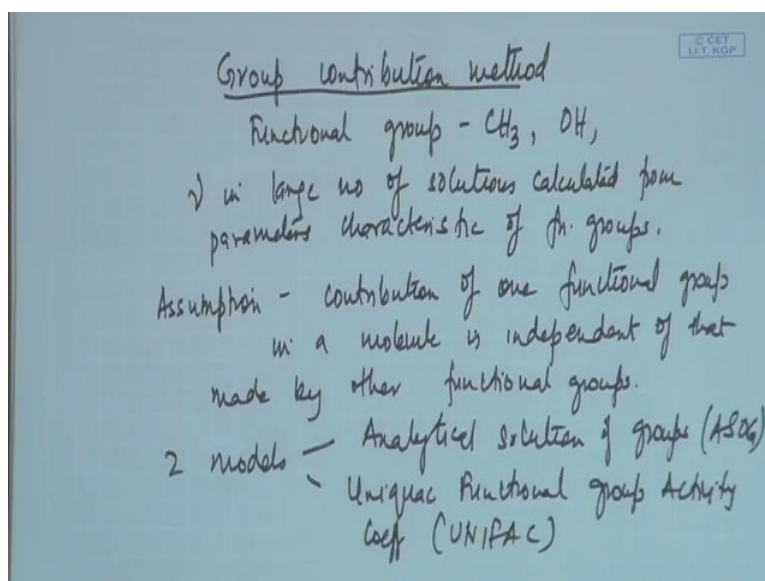 © CET
I.I.T. KGP
Group contribution method
Functional group - CH₃, OH,
γ in large no of solutions calculated from
parameters characteristic of fn. groups.
Assumption - contribution of one functional group
in a molecule is independent of that
made by other functional groups.
2 models - Analytical solution of groups (ASOG)
- Uniquac Functional group Activity
Coeff (UNIFAC)